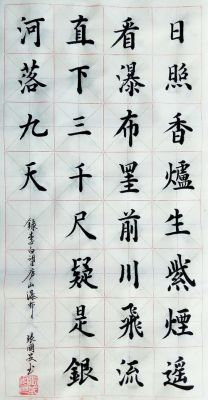 日照香爐生紫煙遥
看瀑布罣前川飛流
直下三千尺疑是銀
河落九天
錄李白望庐山瀑布
張國书